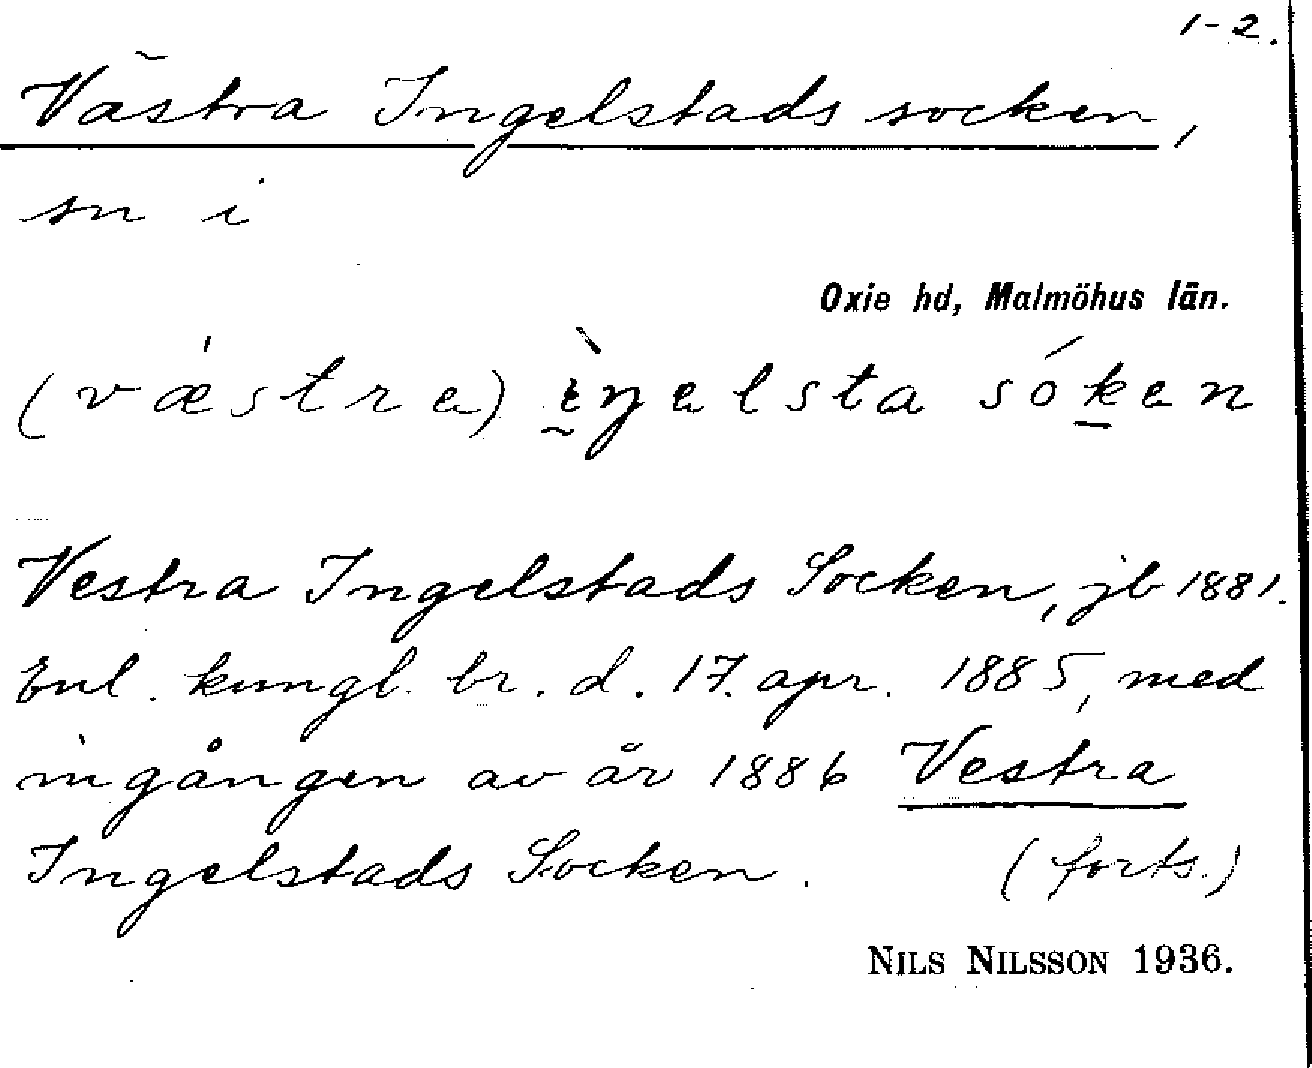 1-2.
Västra Ingelstads socken,
sn i
Oxie hd, Malmöhus län.
(vǽstra) ḭ̀ŋelsta sók̲en
Vestra Ingelstads Socken, jb 1881.
Enl. kungl. br. d. 17. apr. 1885, med
ingången av år 1886 Vestra
Ingelstads Socken. (forts.)
NILS NILSSON 1936.